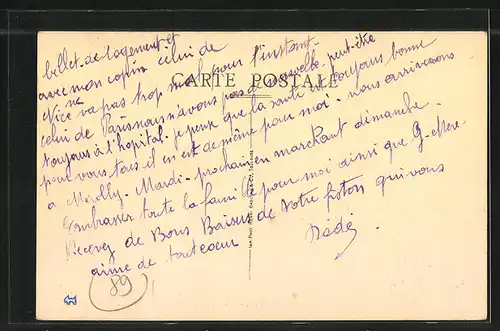 billet de logement et
avec mon copain celui de
Nice ne va pas trop mal pour l'instant
CARTE POSTALE
celui de Paris nous n'avons pas de nouvelle. peut-être
toujours à l'hopital. je peux que la santé est toujours bonne
pour vous tous il en est de même pour moi. nous arriverons
a Mardi. prochain en marchant dimanche.
Embrasser toute la famille pour moi ainsi que
Recevez de Bons Baisers de votre fiston qui vous
aime de tout coeur
Dédé
89